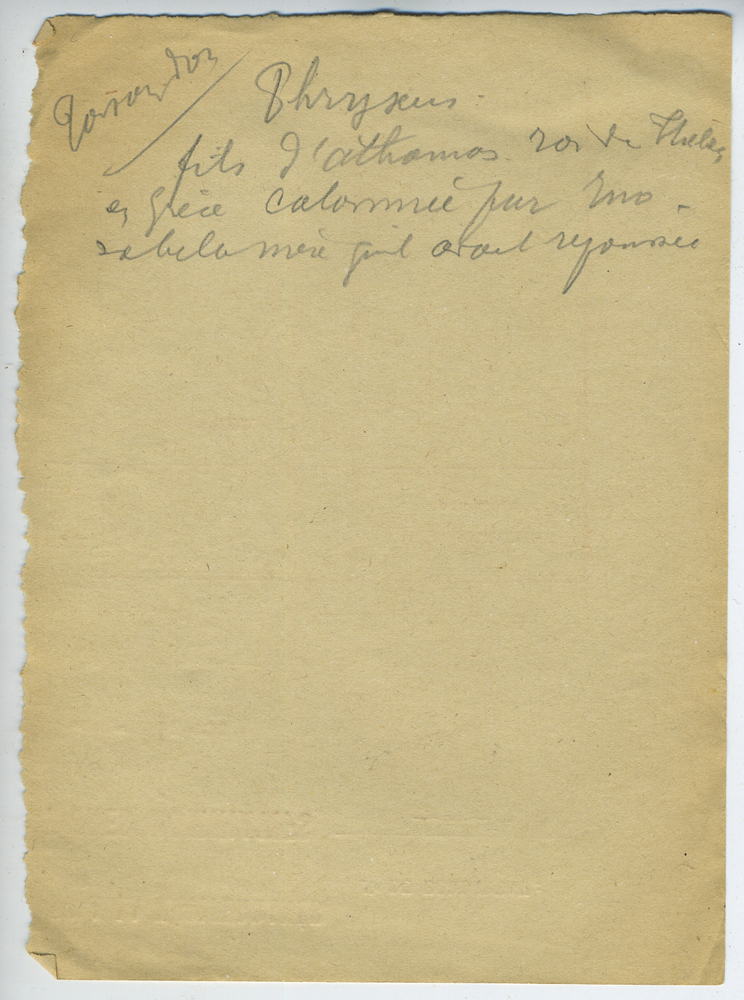 Toison d'or
Phryxus.
fils d'athamas roi de Thèbes
en Grèce calomnié par Ino -
sa belle mère qu'il avait repoussée